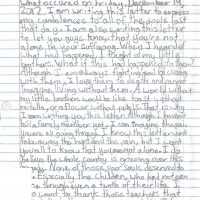 what occurred on Friday, December 14,
2012. I am writing this letter to express
my condolences to all of the souls lost
that day. I am also writing this letter
to let you guys know that you're not
alone in your suffering. When I heard
what had happened I
What if this had happened to them?
Although I am always fighting and bickering
with them, I love them to death and cannot
imagine living without them. A world without
my little brothers would be like
creation without
I am writing you this letter. Although I haven't
lost a family member yet, I can imagine the pain
you are all going through. I know this letter won't
take away the hurt and the pain, but I want
you all to know that you are not alone. I do
believe the whole country is grieving over this
None of those poor souls deserved to
Especially the children, who had not even
through even a tenth of their life. I
want to thank those teachers that